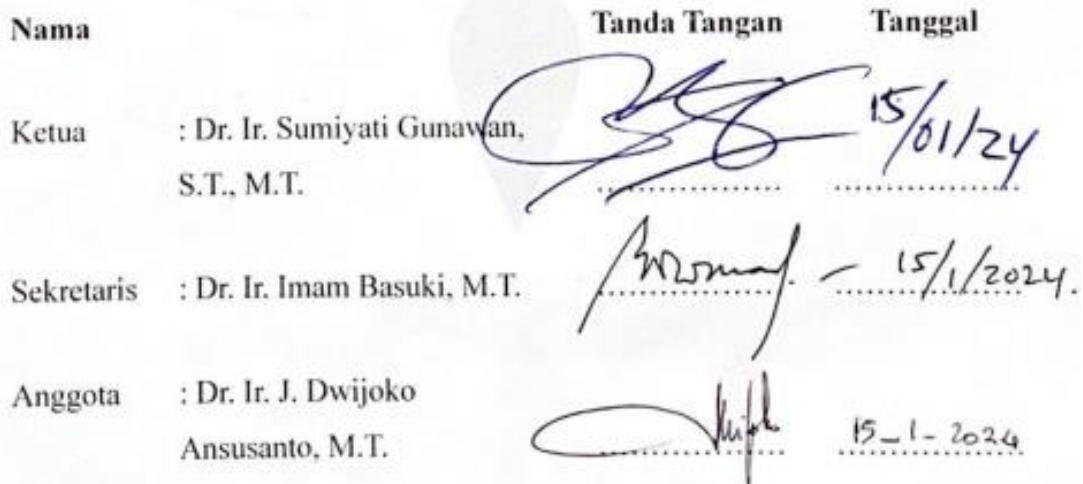 Nama Tanda Tangan Tanggal
Ketua : Dr. Ir. Sumiyati Gunawan, 15/01/24
S.T., M.T. .................... ....................
Sekretaris : Dr. Ir. Imam Basuki, M.T. .................... - 15/1/2024.
Anggota : Dr. Ir. J. Dwijoko
Ansusanto, M.T. .................... 15-1-2024